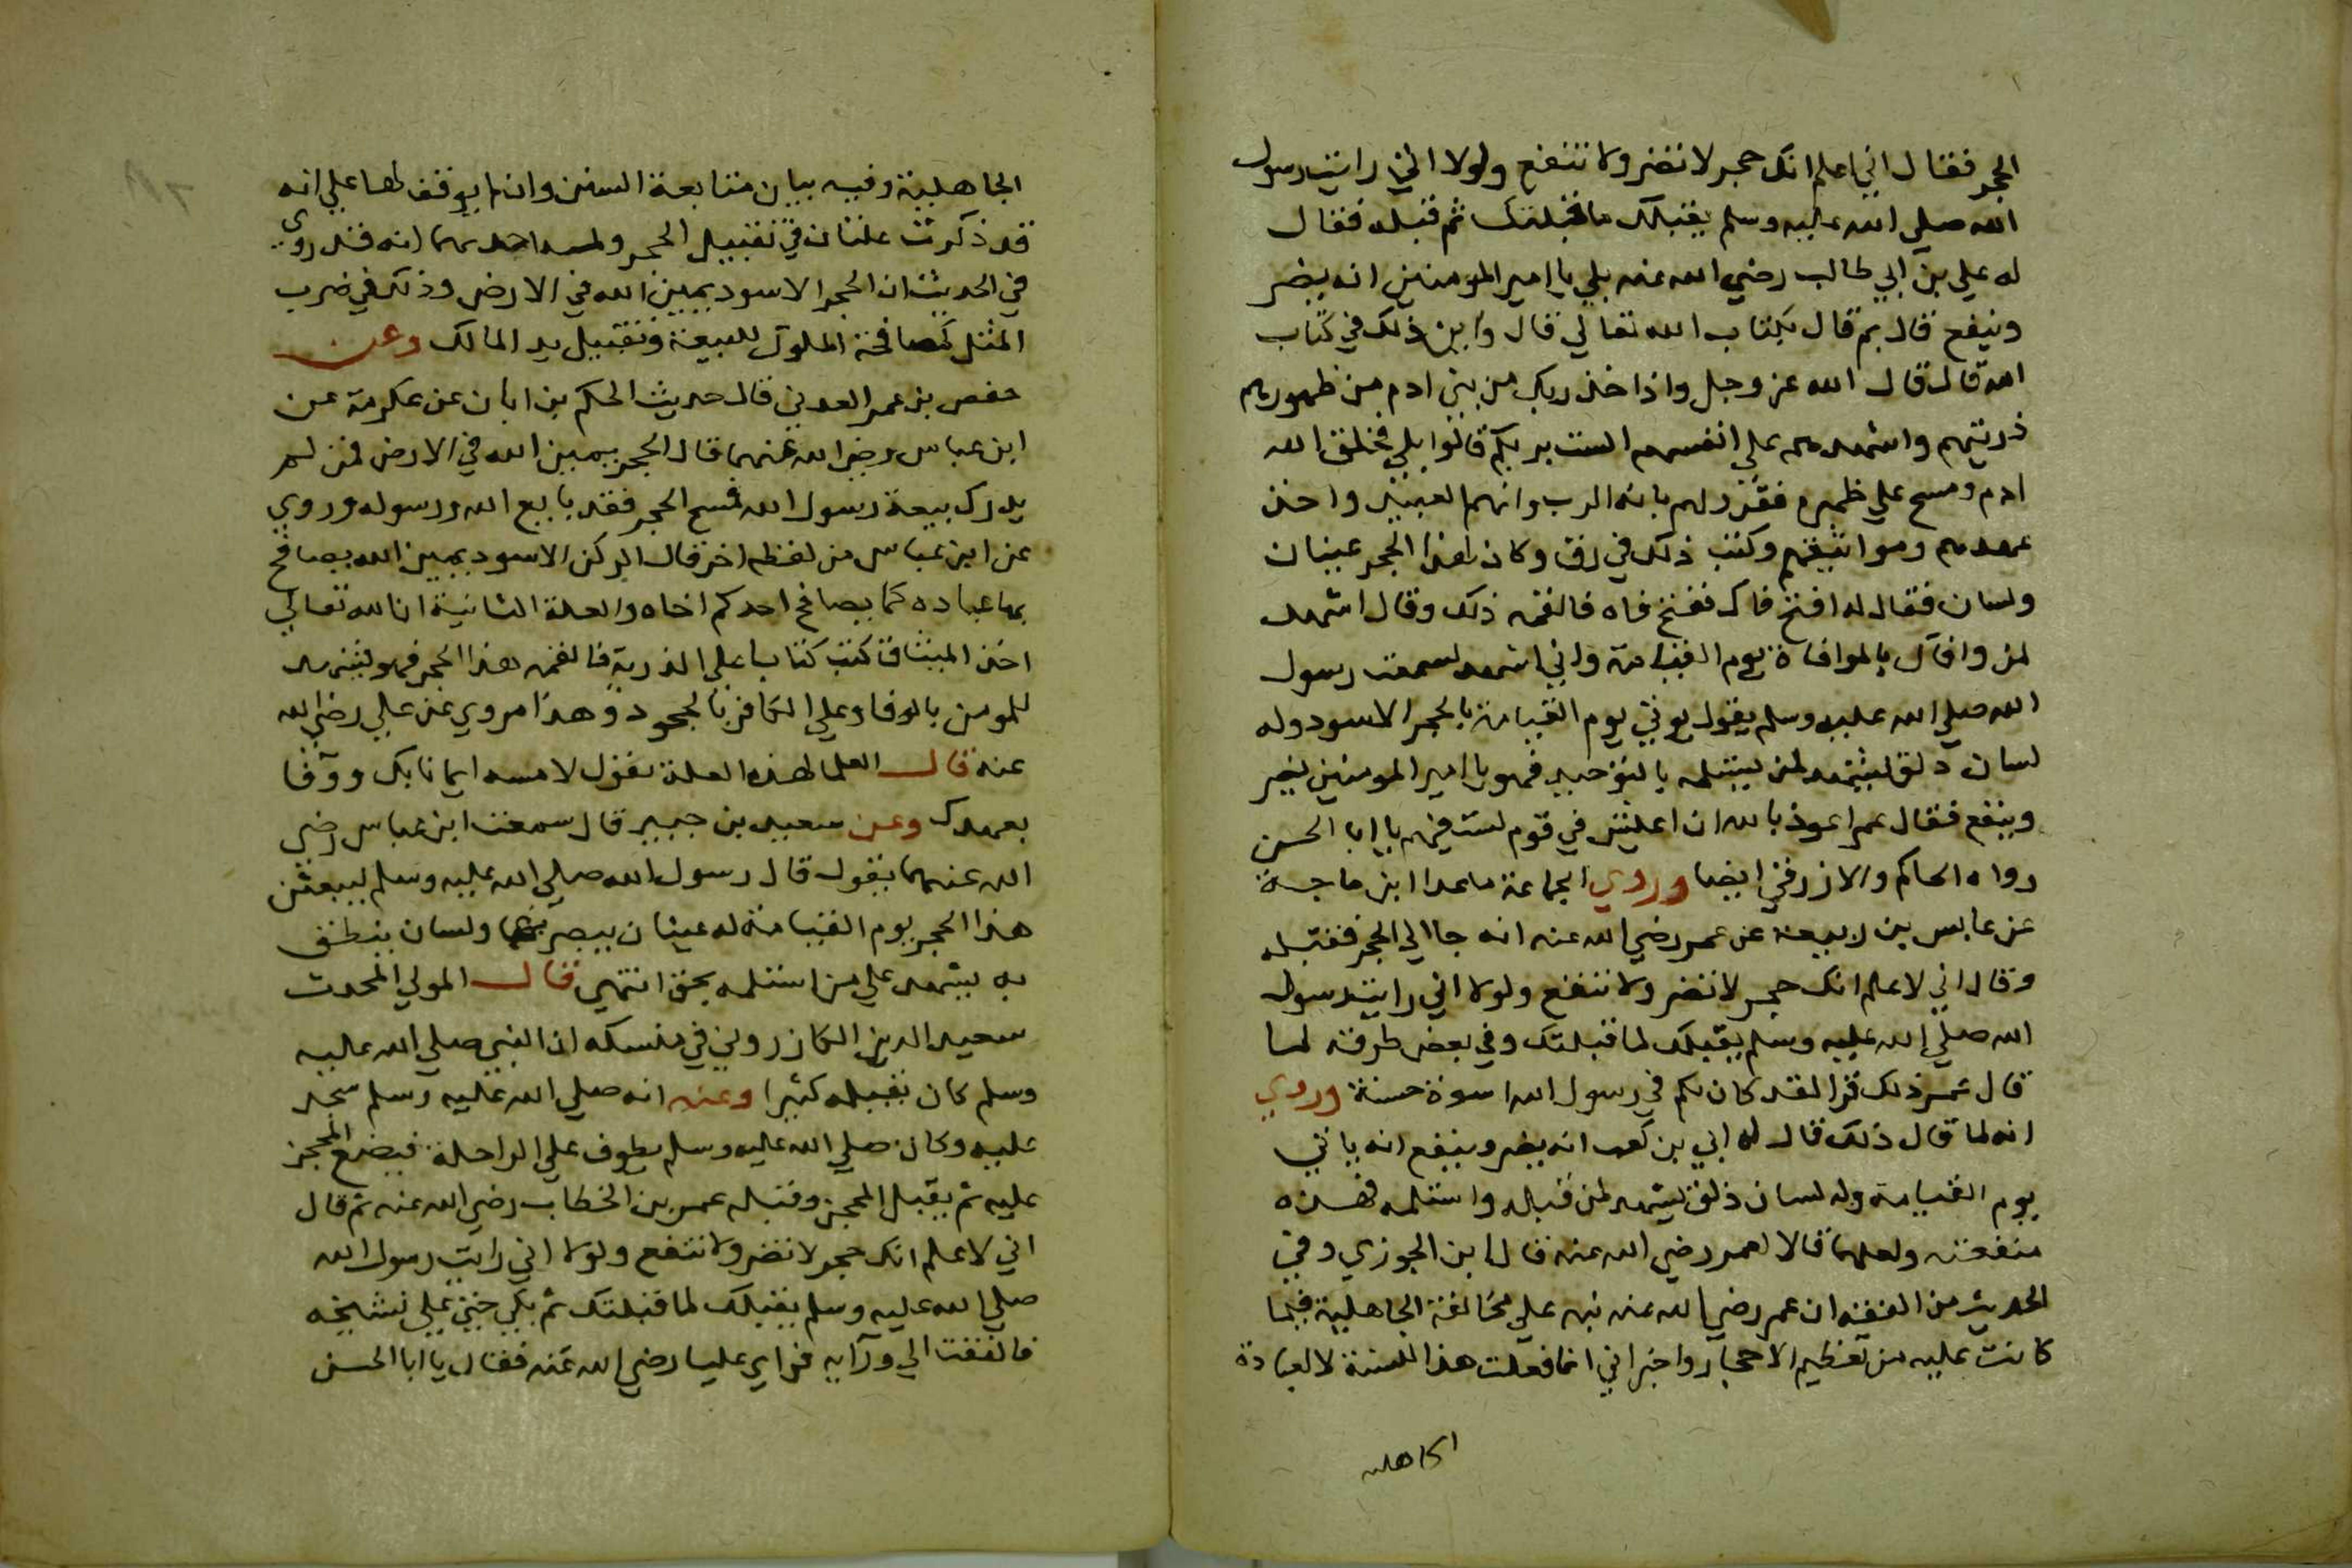 الحجر فقال اني اعلم انك حجر لا تضر ولا تنفع ولولا اني رايت رسول
الله صلى الله عليه وسلم يقبلك ما قبلتك ثم قبله فقال
له علي بن ابي طالب رضي الله عنه بلي يا امير المومنين انه يضر
وينفع قال بم قال بكتاب الله تعالي قال واين ذلك في كتاب
الله قال قال الله عز وجل واذ اخذ ربك من بني ادم من ظهورهم
ذريتهم واشهدهم علي انفسهم الست بربكم قالوا بلي فخلق الله
ادم ومسح علي ظهره فقررلهم بانه الرب وانهم العبيد واخذ
عهدهم ومواثيقهم وكتب ذلك في رق وكان لهذا الحجر عينان
ولسان فقال له افتح فاك ففتح فاه فالقمه ذلك وقال اشهد
لمن وافاك بالموافاة يوم القيامة واني اشهد لسمعت رسول
الله صلي الله عليه وسلم يقول يوتي يوم القيامة بالحجر الاسود وله
لسان دلق يشهد لمن يستلمه بالتوحيد فهو يا امير المومنين يضر
وينفع فقال عمر اعوذ بالله ان اعيش في قوم لست فيهم يا ابا الحسن
رواه الحاكم والازرقي ايضا وروي الجماعة ماعدا ابن ماجة
عن عابس بن ربيعة عن عمر رضي الله عنه انه جا الي الحجر فقبله
وقال اني لاعلم انك حجر لا تضر ولا تنفع ولولا اني رايت رسول
الله صلي الله عليه وسلم يقبلك لما قبلتك وفي بعض طرقه لما
قال عمر ذلك قرا لقد كان لكم في رسول الله اسوة حسنة وروي
انه لما قال ذلك قال له ابي بن كعب انه يضر وينفع انه ياتي
يوم القيامة وله لسان ذلق يشهد لمن قبله واستلمه فهذه
منفعته ولعلهما قالا لعمر رضي الله عنه قال ابن الجوزي وفي
الحديث من الفقه ان عمر رضي الله عنه نبه علي مخالفة الجاهلية فيما
كانت عليه من تعظيم الاحجار واخبر اني انما فعلت هذا للسنة لا لعادة
الجاهلية
الجاهلية وفيه بيان متابعة السنن وان لم يوقف لها علي انه
قد ذكرت علتان في تقبيل الحجر احدهما انه قد روي
في الحديث ان الحجر الاسود يمين الله في الارض وذلك في ضرب
المثل كمصافحة الملوك للبيعة وتقبيل يد المالك وعن
حفص بن عمر العدني قال حديث الحكم بن ابان عن عكرمة عن
ابن عباس رضي الله عنهما قال الحجر يمين الله في الارض فمن لم
يدرك بيعة رسول الله فمسح الحجر فقد بايع الله ورسوله وروي
عن ابن عباس من لفظ اخر قال الركن الاسود يمين الله يصافح
بها عباده كما يصافح احدكم اخاه والعلة الثانية ان الله تعالي
اخذ الميثاق كتب كتابا علي الذرية فالقمه هذا الحجر فهو يشهد
للمومن بالوفا وعلي الكافر بالجحود وهذا مروي عن علي رضي الله
عنه قال العلما لهذه العلة يقول لامسه ايمانا بك ووفا
بعهدك وعن سعيد بن جبير قال سمعت ابن عباس رضي
الله عنهما يقول قال رسول الله صلي الله عليه وسلم ليبعثن
هذا الحجر يوم القيامة له عينان يبصر بهما ولسان ينطق
به يشهد علي من استلمه بحق انتهي قال المولي المحدث
سعيد الدين الكازروني في منسكه ان النبي صلي الله عليه
وسلم كان يقبله كثيرا وعنه انه صلي الله عليه وسلم سجد
عليه وكان صلي الله عليه وسلم يطوف علي الراحلة فيضع المحجن
عليه ثم يقبل المحجن وقبله عمر بن الخطاب رضي الله عنه ثم قال
اني لاعلم انك حجر لا تضر ولا تنفع ولولا اني رايت رسول الله
صلي الله عليه وسلم يقبلك لما قبلتك ثم بكي حتي علي نشيجه
فالتفت الي ورايه فراي عليا رضي الله عنه فقال يا ابا الحسن